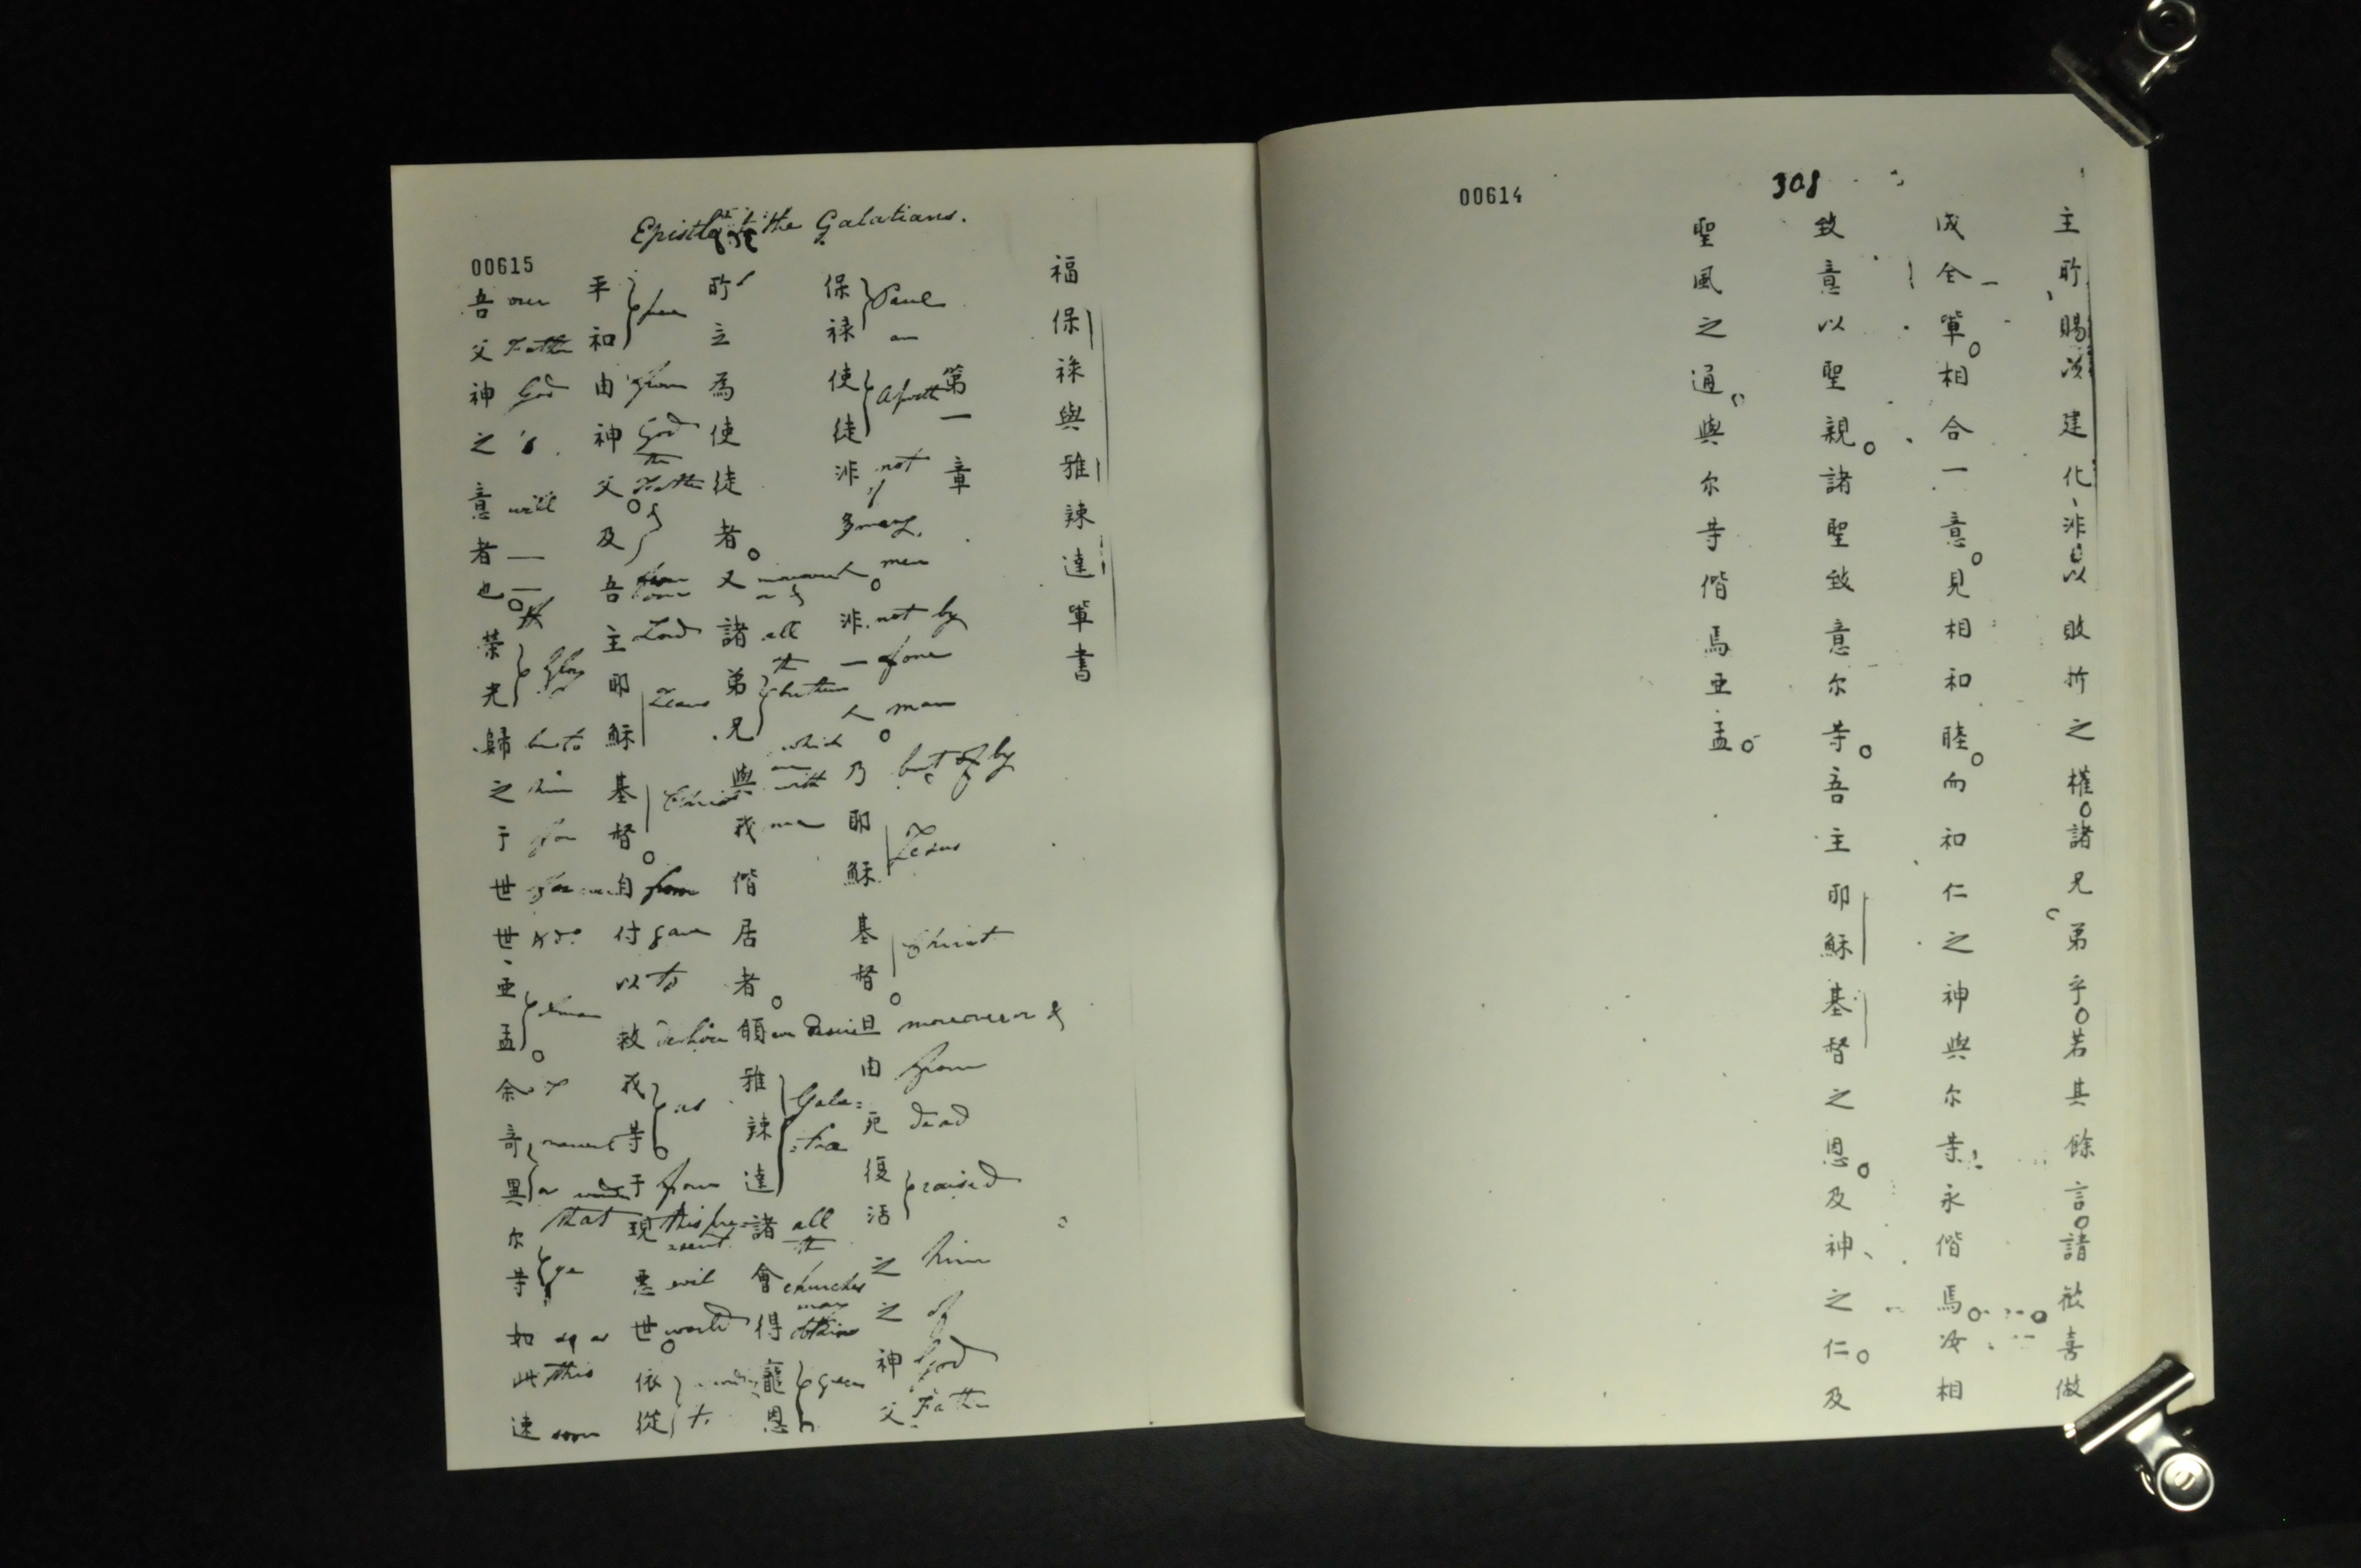 00614
308
主所賜følge建化、非以敗折之權。諸兄弟乎。若其餘言。請歡喜做
成全軰。相合一意。見相和睦。而和仁之神與尔等永偕焉。汝相
致意以聖親。諸聖致意尔等。吾主耶穌基督之恩。及神之仁。及
聖風之通。與尔等偕焉亞孟。
Epistle to the Galatians.
00615
福保祿與雅辣達軰書
第一章
保祿使徒非多人。非一人。乃耶穌基督。且由死復活之之神父
Paul an Apostle not of many men not by of one man but of by Jesus Christ moreover or & from dead raised him of God Father
所立為使徒者。又諸弟兄與我偕居者。願雅辣達諸會得寵恩
moreover or & all the brethren which are with me desire Gala=tia all the churches may obtain grace
平和由神父。及吾主耶穌基督。自付以救我等。于現惡世。依從
from God the Father & Lord Jesus Christ from gave to us from this pre=sent evil world to
吾父神之意者也。榮光歸之于世世、亞孟。余奇異尔等如此速
our Father God 's will — — glory to him for ever & do. I or that ye as this soon